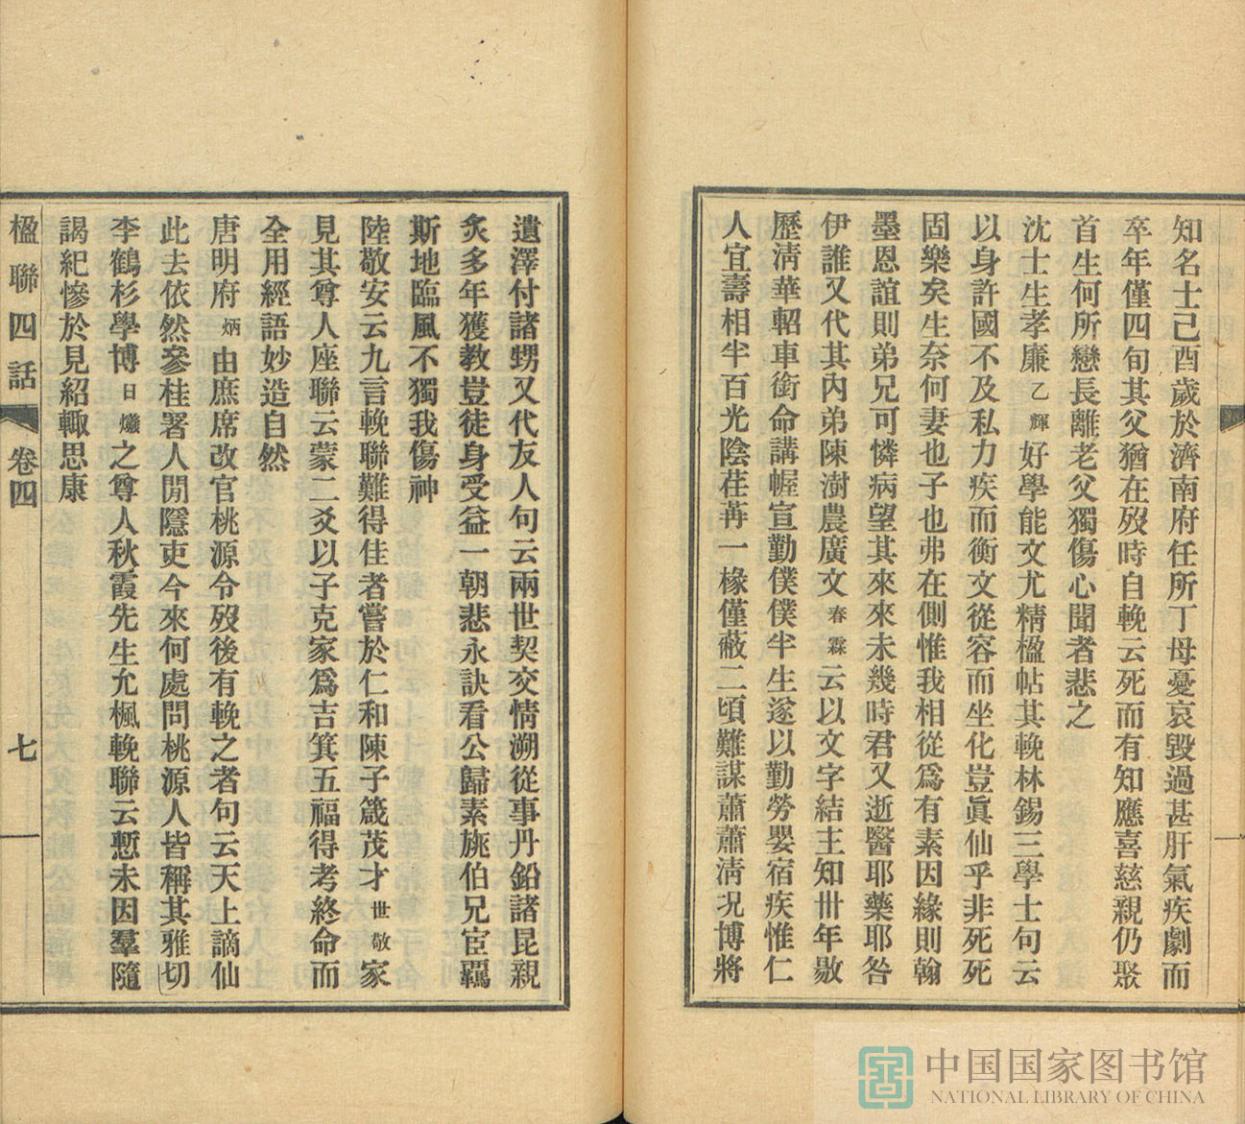 知名士己酉歲於濟南府任所丁母憂哀毀過甚肝氣疾劇而
卒年僅四旬其父猶在歿時自輓云死而有知應喜慈親仍聚
首生何所戀長離老父獨傷心聞者悲之
沈士生孝廉乙輝好學能文尤精楹帖其輓林錫三學士句云
以身許國不及私力疾而衡文從容而坐化豈眞仙乎非死死
固樂矣生奈何妻也子也弗在側惟我相從爲有素因緣則翰
墨恩誼則弟兄可憐病望其來來未幾時君又逝醫耶藥耶咎
伊誰又代其內弟陳澍農廣文春霖云以文字結主知卅年敭
歷淸華軺車銜命講幄宣勤僕僕半生遂以勤勞嬰宿疾惟仁
人宜壽相半百光陰荏苒一椽僅蔽二頃難謀蕭蕭淸况博將
遺澤付諸甥又代友人句云兩世契交情溯從事丹鉛諸昆親
炙多年獲教豈徒身受益一朝悲永訣看公歸素旐伯兄宦羈
斯地臨風不獨我傷神
陸敬安云九言輓聯難得佳者嘗於仁和陳子箴茂才世敬家
見其尊人座聯云蒙二爻以子克家爲吉箕五福得考終命而
全用經語妙造自然
唐明府炳由庶席改官桃源令歿後有輓之者句云天上謫仙
此去依然參桂署人閒隱吏今來何處問桃源人皆稱其雅切
李鶴杉學博日爔之尊人秋霞先生允楓輓聯云慙未因羣隨
謁紀慘於見紹輙思康
楹聯四話
卷四
七
中国国家图书馆
NATIONAL LIBRARY OF CHINA